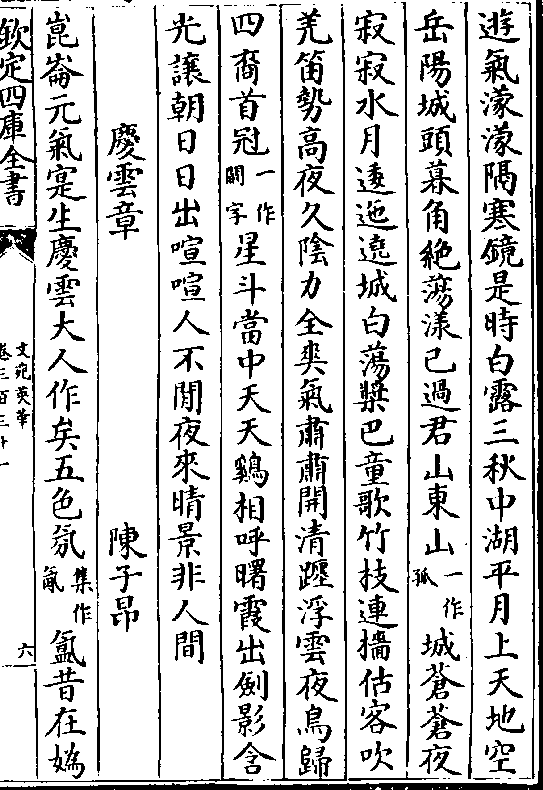 遊氣濛濛隔寒鏡是時白露三秋中湖平月上天地空
岳陽城頭暮角絶蕩漾已過君山東山一作孤城蒼蒼夜
寂寂水月逶迤遶城白蕩槳巴童歌竹枝連檣估客吹
羌笛勢高夜久陰力全爽氣肅肅開清躔浮雲夜鳥歸
四裔首冠一作闕字星斗當中天天鷄相呼曙霞出劍影含
光讓朝日日出喧喧人不閒夜來晴景非人間
慶雲章 陳子昂
崑崙元氣寔生慶雲大人作矣五色氛集作氤氳昔在嬀
欽定四庫全書
文苑英華
卷三百三十一
六